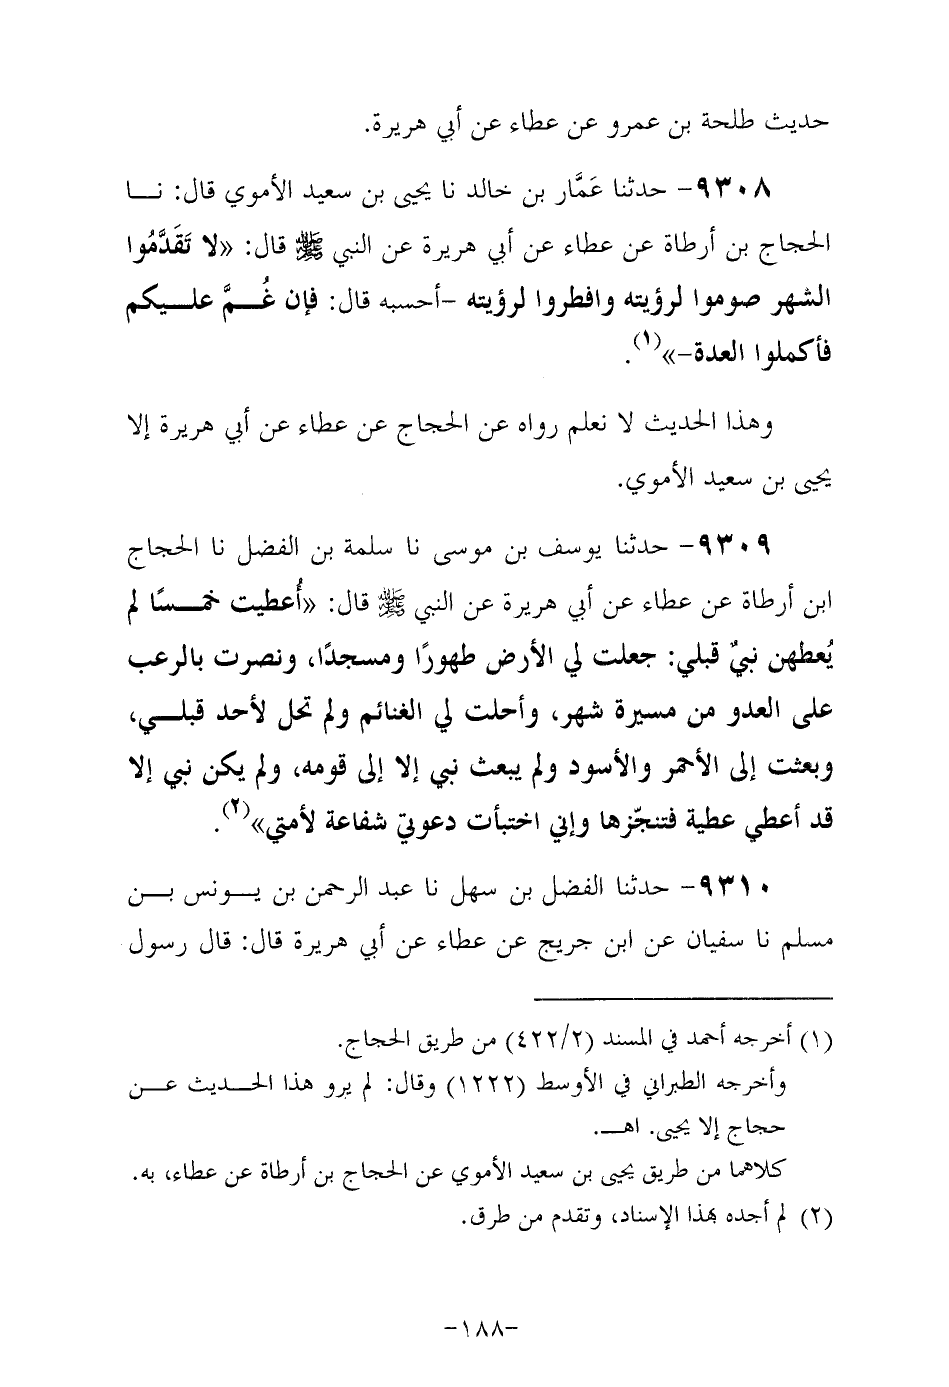 حديث طلحة بن عمرو عن عطاء عن أبي هريرة.
٩٣٠٨- حدثنا عَمَّار بن خالد نا يحيى بن سعيد الأموي قال: نـــا
الحجاج بن أرطاة عن عطاء عن أبي هريرة عن النبي ﷺ قال: «لا تَقَدَّمُوا
الشهر صوموا لرؤيته وافطروا لرؤيته -أحسبه قال: فإن غُـــمَّ علـــيكم
فأكملوا العدة-»(١).
وهذا الحديث لا نعلم رواه عن الحجاج عن عطاء عن أبي هريرة إلا
يحيى بن سعيد الأموي.
٩٣٠٩- حدثنا يوسف بن موسى نا سلمة بن الفضل نا الحجاج
ابن أرطاة عن عطاء عن أبي هريرة عن النبي ﷺ قال: «أُعطيت خمـــسًا لم
يُعطهن نبيٌ قبلي: جعلت لي الأرض طهورًا ومسجدًا، ونصرت بالرعب
على العدو من مسيرة شهر، وأحلت لي الغنائم ولم تحل لأحد قبلـــي،
وبعثت إلى الأحمر والأسود ولم يبعث نبي إلا إلى قومه، ولم يكن نبي إلا
قد أعطي عطية فتنجّزها وإني اختبأت دعوتي شفاعة لأمتي»(٢).
٩٣١٠- حدثنا الفضل بن سهل نا عبد الرحمن بن يـــونس بـــن
مسلم نا سفيان عن ابن جريج عن عطاء عن أبي هريرة قال: قال رسول
(١) أخرجه أحمد في المسند (٤٢٢/٢) من طريق الحجاج.
وأخرجه الطبراني في الأوسط (١٢٢٢) وقال: لم يرو هذا الحـــديث عـــن
حجاج إلا يحيى. اهـــ.
كلاهما من طريق يحيى بن سعيد الأموي عن الحجاج بن أرطاة عن عطاء، به.
(٢) لم أجده بهذا الإسناد، وتقدم من طرق.
-١٨٨-